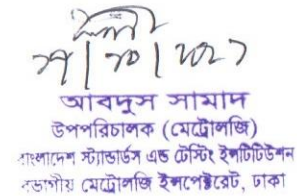 আবদুস সামাদ
উপপরিচালক (মেট্রোলজি)
বাংলাদেশ স্ট্যান্ডার্ডস এন্ড টেস্টিং ইন্সটিটিউশন
বিভাগীয় মেট্রোলজি ইন্সপেক্টরেট, ঢাকা